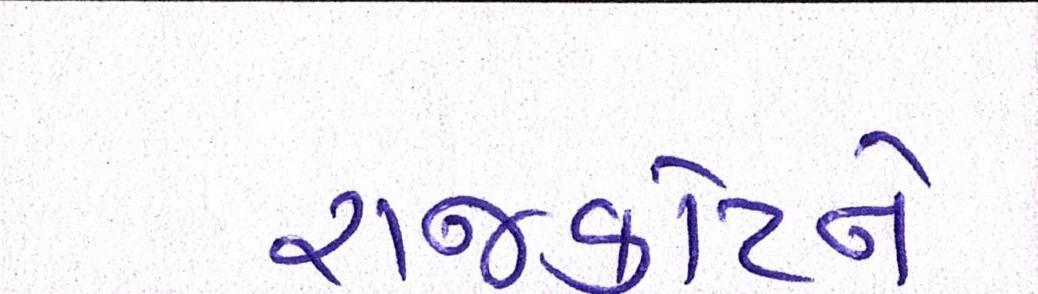 રાજકોટને